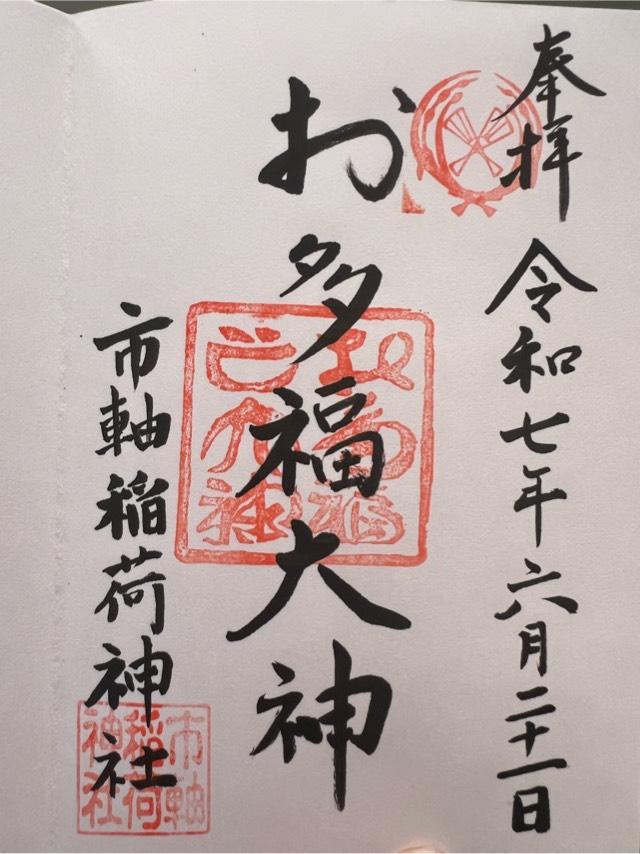 奉拝
令和七年六月二十一日
お多福大神
市軸稲荷神社
市軸
稲荷
神社